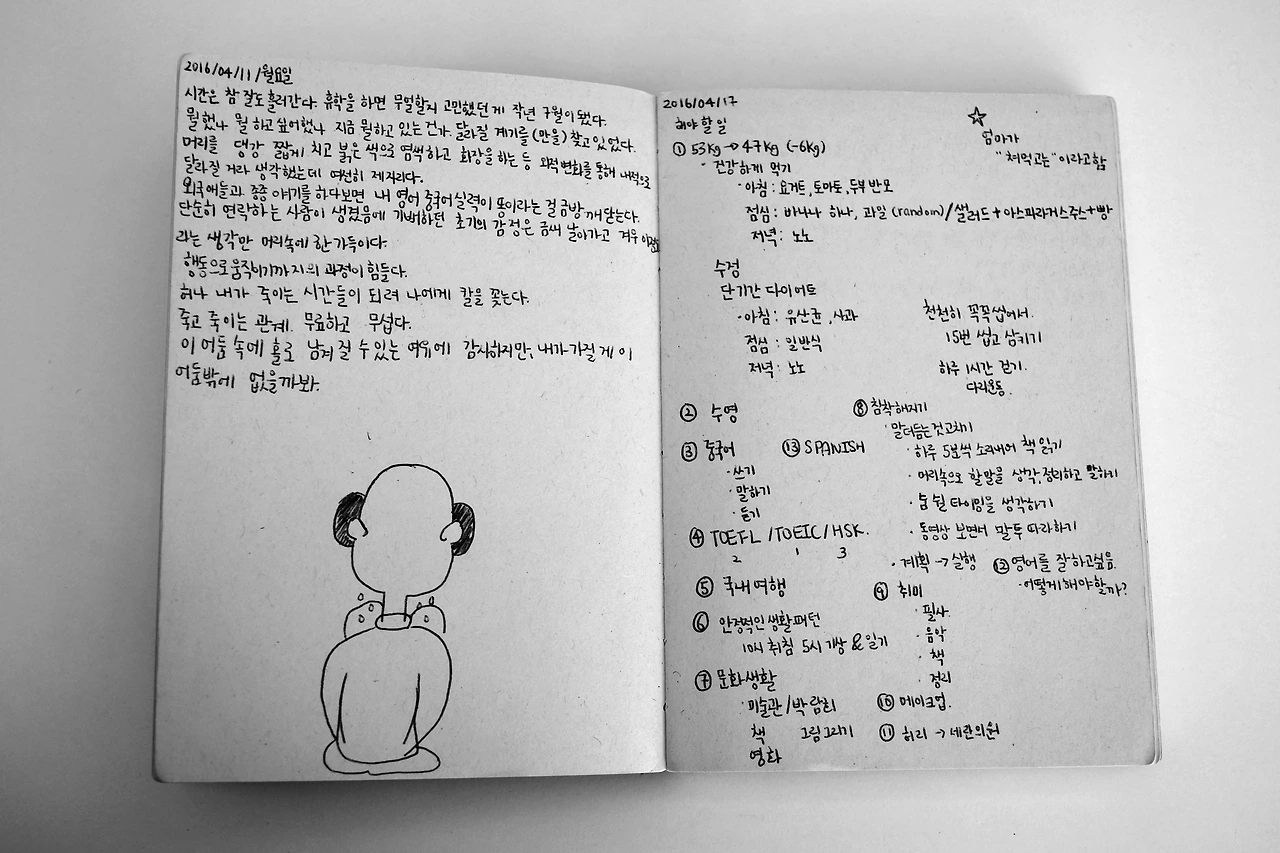 2016/04/11/월요일
시간은 참 잘도 흘러간다. 휴학을 하면 무얼할지 고민했던게 작년 7월이 됐다.
뭘했나 뭘 하고 싶어했나 지금 뭘하고 있는건가. 달라질 계기를 (만을) 찾고 있었다.
머리를 댕강 짧게 치고 붉은 색으로 염색하고 화장을 하는 등 외적변화를 통해 내적으로
달라질 거라 생각했는데 여전히 제자리다.
외국애들과 종종 얘기를 하다보면 내 영어 중국어 실력이 똥이라는 걸 금방 깨닫는다.
단순히 연락하는 사람이 생겼음에 기뻐하던 초기의 감정은 금새 날아가고 겨우 이정도
라는 생각만 머리속에 한가득이다.
행동으로 움직이기까지의 과정이 힘들다.
허나 내가 죽이는 시간들이 되려 나에게 칼을 꽂는다.
죽고 죽이는 관계. 무료하고 무섭다.
이 어둠 속에 홀로 남겨질 수 있는 여유에 감사하지만, 내가 가질 게 이
어둠밖에 없을까봐.
2016/04/17
해야 할 일
☆
엄마가
"처먹고는" 이라고 함
① 53kg → 47kg (-6kg)
· 건강하게 먹기
· 아침 : 요거트, 토마토, 두부 반모
점심 : 바나나 하나, 과일 (random) / 샐러드 + 아스파라거스주스 + 빵
저녁 : 노노
수정
단기간 다이어트
· 아침 : 유산균, 사과
점심 : 일반식
저녁 : 노노
천천히 꼭꼭 씹어서.
15번 씹고 삼키기
하루 1시간 걷기.
다리운동.
② 수영
③ 중국어
· 쓰기
· 말하기
· 듣기
⑬ SPANISH
④ TOEFL / TOEIC / HSK.
2 1 3
⑤ 국내 여행
⑥ 안정적인 생활패턴
10시 취침 5시 기상 & 일기
⑦ 문화생활
· 미술관 / 박람회
책 그림그리기
영화
⑧ 침착해지기
· 말더듬는것고치기
· 하루 5분씩 소리내어 책 읽기
· 머리속으로 할말을 생각, 정리하고 말하기
· 숨 쉴 타이밍을 생각하기
· 동영상 보면서 말투 따라하기
· 계획 → 실행
⑫ 영어를 잘 하고싶음.
· 어떻게 해야 할까?
⑨ 취미
· 필사
· 음악
· 책
· 정리
⑩ 메이크업.
⑪ 허리 → 세란의원